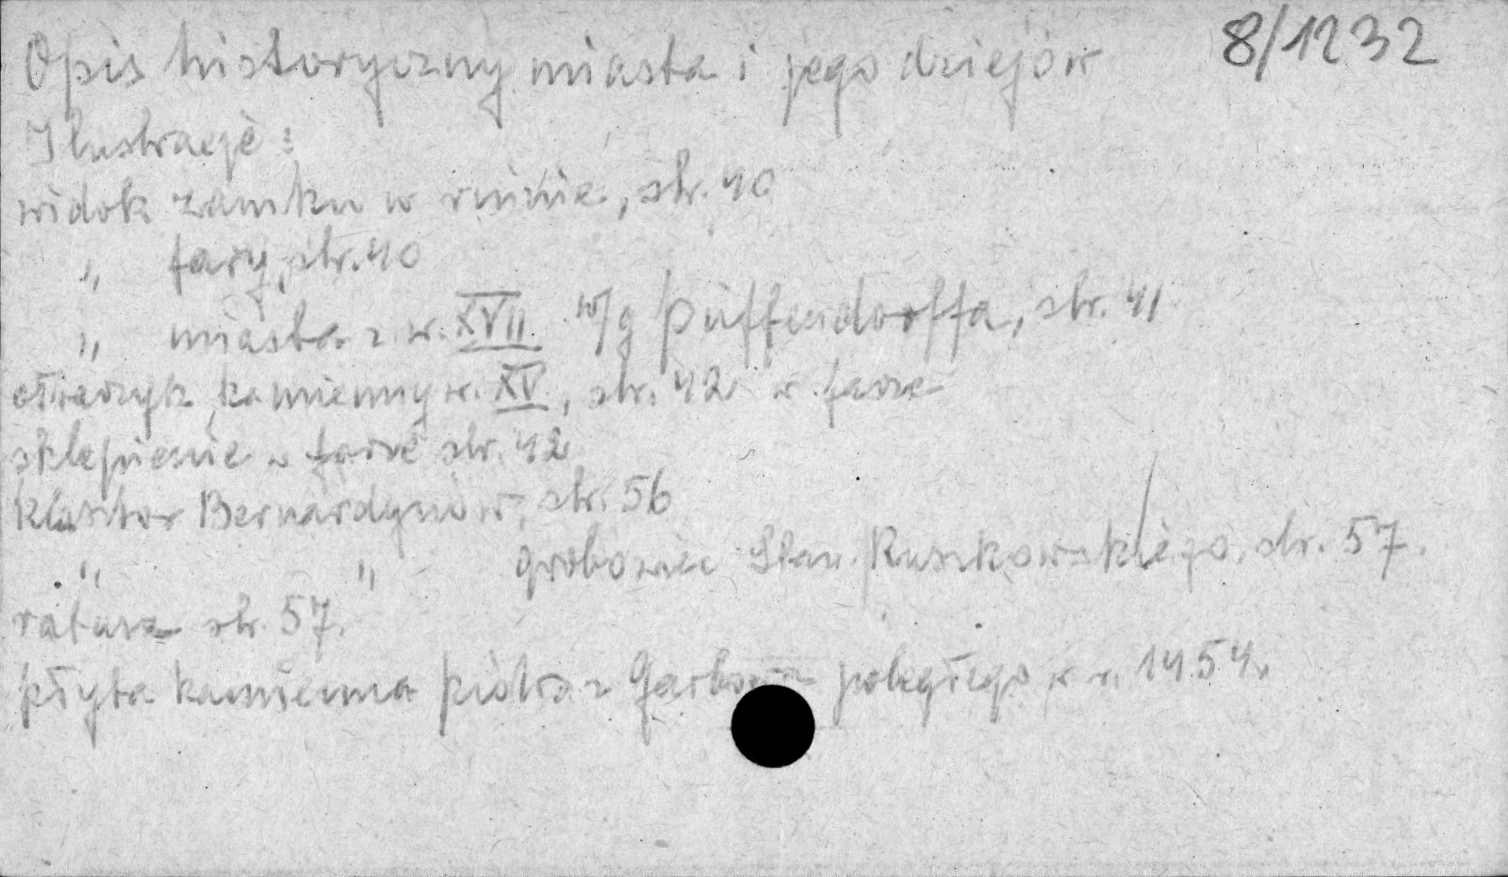 8/1232
Opis historyczny miasta i jego dziejów
Ilustracje:
widok zamku w ruinie, str. 40
„ fary, str. 40
„ miasta z w. XVII w/g Puffendorffa, str. 41
ołtarzyk kamienny w. XV, str. 42 w farze
sklepienie w farze str. 42
klasztor Bernardynów, str. 56
„ „ grobowiec Stan. Ruszkowskiego, str. 57.
ratusz str. 57.
płyta kamienna Piotra z Garbowa poległego w r. 1454.